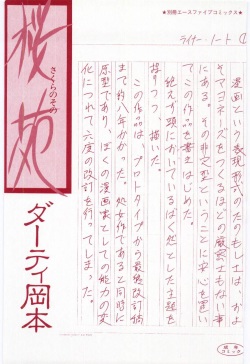 ★別冊エースファイブコミックス★
桜苑
さくらのその
ダーティ岡本
ライナー・ノート
漫画という表現形式のたのもしさは、およ
そマヨネーズをつくるほどの厳密さもない事
にある。その非定型ということに安心を置い
てこの作品を書きはじめた。
絶えず頭においているばく然とした主題を
採りつつ、描いた。
この作品は、プロトタイプから最終改訂稿
まで約八年かかった。処女作であると同時に
原型であり、ぼくの漫画家としての能力の変
化につれて六度の改訂を行ってしまった。
成年コミック